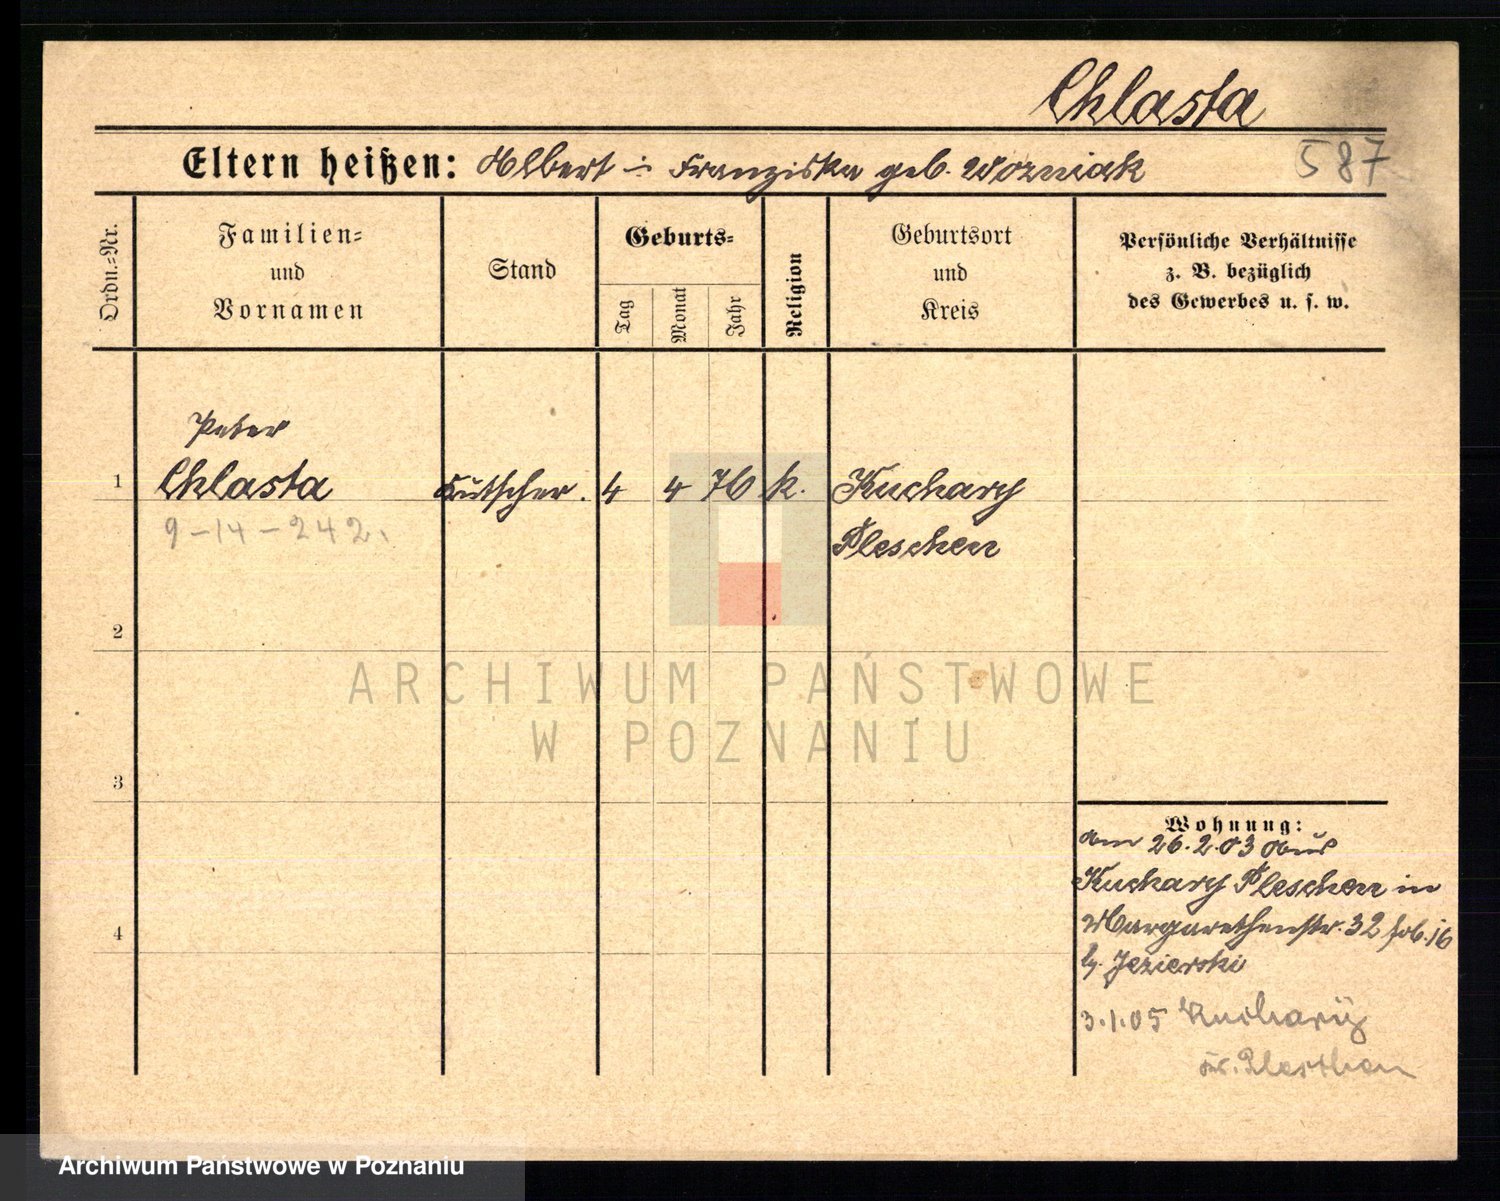 Chlasta
Eltern heißen: Albert - Franziska geb. Wozniak
587
Ordn.-Nr.
Familien-
und
Vornamen
Stand
Geburts-
Tag
Monat
Jahr
Religion
Geburtsort
und
Kreis
Persönliche Verhältnisse
z. B. bezüglich
des Gewerbes u. s. w.
Peter
1 Chlasta Kutscher. 4 4 76 k. Kuchary
9-14-242.
Pleschen
2
ARCHIWUM PAŃSTWOWE
W POZNANIU
3
Wohnung:
am 26.2.03 aus
Kuchary Pleschen in
Margarethenstr. 32
4
b. Jezierski
3.1.05 Kuchary
Kr. Pleschen
Archiwum Państwowe w Poznaniu